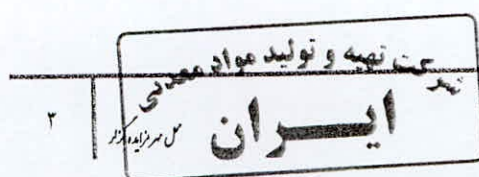 شرکت تهیه و تولید مواد معدنی
ایران
محل مهر مزایده گزار
۳